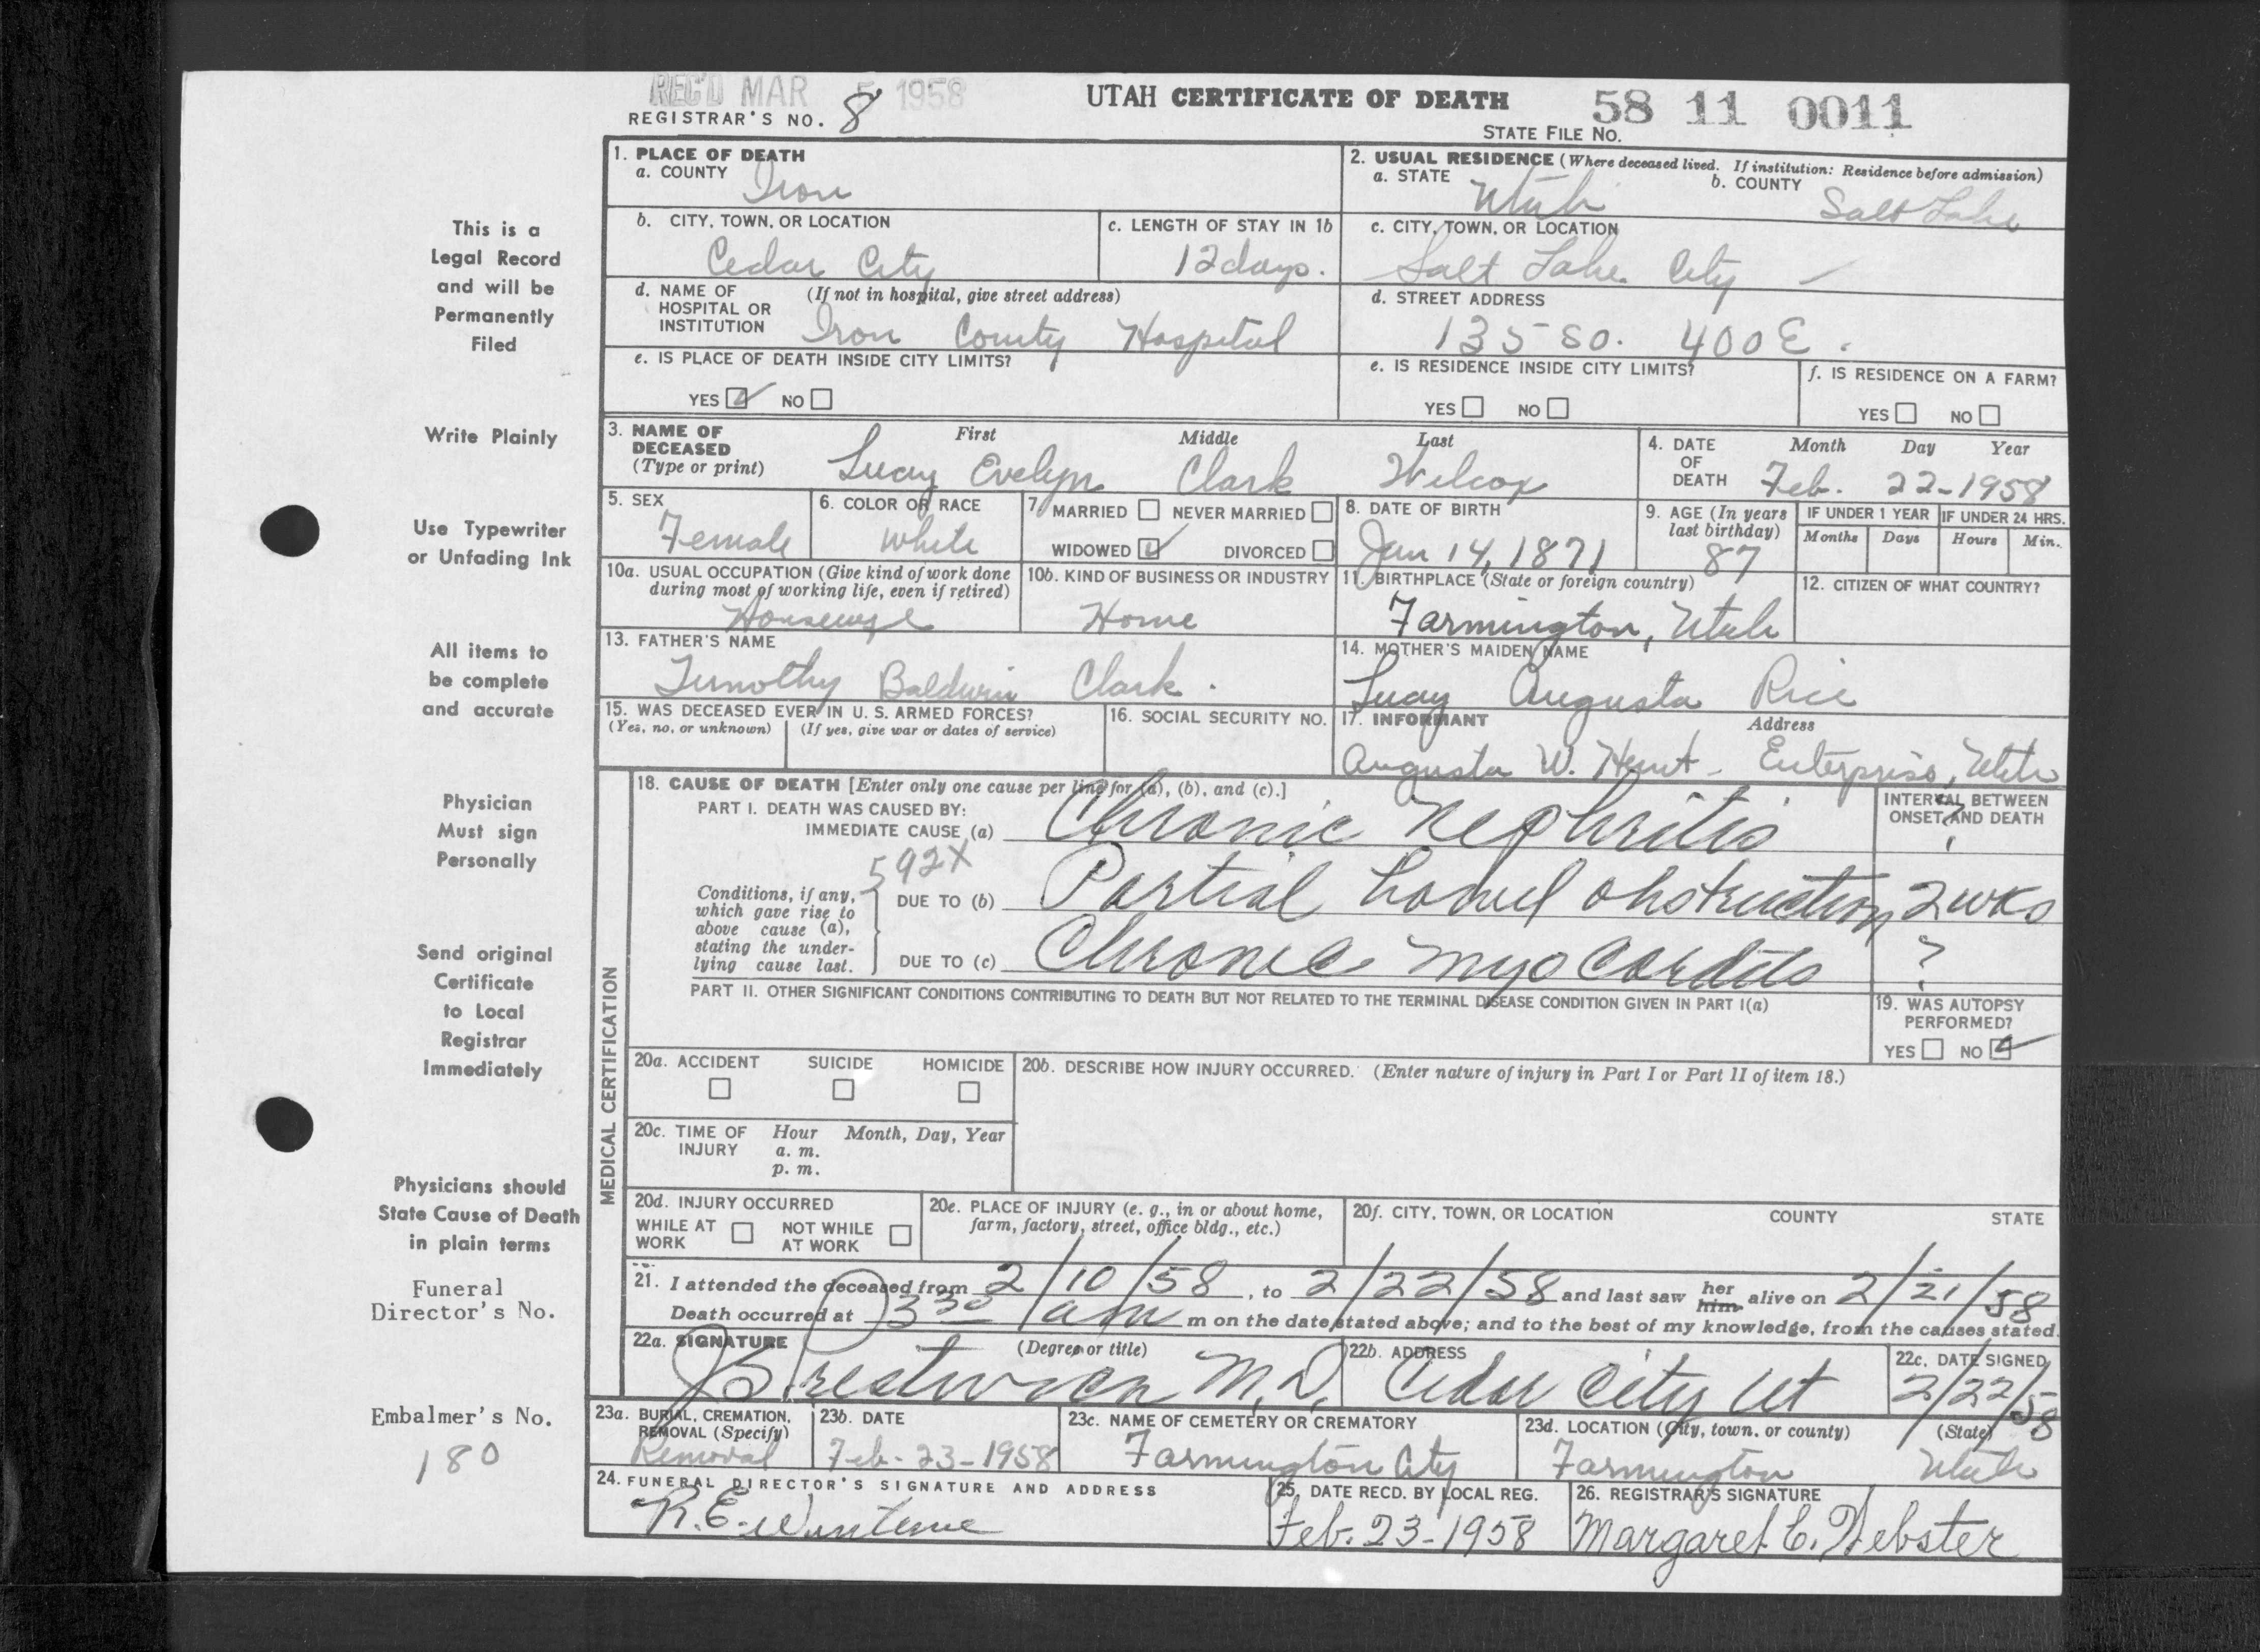 REC'D MAR 5 1958
UTAH CERTIFICATE OF DEATH
58 11 0011
REGISTRAR'S NO. 8
STATE FILE NO.
1. PLACE OF DEATH
a. COUNTY Iron
2. USUAL RESIDENCE (Where deceased lived. If institution: Residence before admission)
a. STATE Utah b. COUNTY Salt Lake
b. CITY, TOWN, OR LOCATION Cedar City
c. LENGTH OF STAY IN 1b 12 days.
c. CITY, TOWN, OR LOCATION Salt Lake City
d. NAME OF HOSPITAL OR INSTITUTION (If not in hospital, give street address) Iron County Hospital
d. STREET ADDRESS 135 So. 400 E.
e. IS PLACE OF DEATH INSIDE CITY LIMITS?
YES ☑ NO ☐
e. IS RESIDENCE INSIDE CITY LIMITS?
YES ☐ NO ☐
f. IS RESIDENCE ON A FARM?
YES ☐ NO ☐
3. NAME OF DECEASED (Type or print)
First Middle Last
Lucy Evelyn Clark Wilcox
4. DATE OF DEATH Month Day Year
Feb. 22-1958
5. SEX Female
6. COLOR OR RACE White
7. MARRIED ☐ NEVER MARRIED ☐
WIDOWED ☑ DIVORCED ☐
8. DATE OF BIRTH Jan 14, 1871
9. AGE (In years last birthday) 87
IF UNDER 1 YEAR Months Days
IF UNDER 24 HRS. Hours Min.
10a. USUAL OCCUPATION (Give kind of work done during most of working life, even if retired) Housewife
10b. KIND OF BUSINESS OR INDUSTRY Home
11. BIRTHPLACE (State or foreign country) Farmington, Utah
12. CITIZEN OF WHAT COUNTRY?
13. FATHER'S NAME Timothy Baldwin Clark.
14. MOTHER'S MAIDEN NAME Lucy Augusta Rice
15. WAS DECEASED EVER IN U. S. ARMED FORCES?
(Yes, no, or unknown) (If yes, give war or dates of service)
16. SOCIAL SECURITY NO.
17. INFORMANT Address
Augusta W. Hunt - Enterprise, Utah
MEDICAL CERTIFICATION
18. CAUSE OF DEATH [Enter only one cause per line for (a), (b), and (c).]
PART I. DEATH WAS CAUSED BY:
IMMEDIATE CAUSE (a) Chronic Nephritis
INTERVAL BETWEEN ONSET AND DEATH
?
592X
Conditions, if any, which gave rise to above cause (a), stating the underlying cause last.
DUE TO (b) Partial bowel obstruction 2 wks
DUE TO (c) Chronic myocarditis ?
PART II. OTHER SIGNIFICANT CONDITIONS CONTRIBUTING TO DEATH BUT NOT RELATED TO THE TERMINAL DISEASE CONDITION GIVEN IN PART I(a)
19. WAS AUTOPSY PERFORMED?
YES ☐ NO ☑
20a. ACCIDENT SUICIDE HOMICIDE
☐ ☐ ☐
20b. DESCRIBE HOW INJURY OCCURRED. (Enter nature of injury in Part I or Part II of item 18.)
20c. TIME OF INJURY Hour Month, Day, Year
a. m.
p. m.
20d. INJURY OCCURRED
WHILE AT WORK ☐ NOT WHILE AT WORK ☐
20e. PLACE OF INJURY (e. g., in or about home, farm, factory, street, office bldg., etc.)
20f. CITY, TOWN, OR LOCATION COUNTY STATE
21. I attended the deceased from 2/10/58, to 2/22/58 and last saw her him alive on 2/21/58
Death occurred at 3 30 am m on the date stated above; and to the best of my knowledge, from the causes stated.
22a. SIGNATURE (Degree or title)
Prestwich M.D.
22b. ADDRESS Cedar City Ut
22c. DATE SIGNED 2/22/58
23a. BURIAL, CREMATION, REMOVAL (Specify) Removal
23b. DATE Feb-23-1958
23c. NAME OF CEMETERY OR CREMATORY Farmington City
23d. LOCATION (City, town, or county) (State)
Farmington Utah
24. FUNERAL DIRECTOR'S SIGNATURE AND ADDRESS
R.E.
25. DATE RECD. BY LOCAL REG. Feb. 23-1958
26. REGISTRAR'S SIGNATURE Margaret E. Webster
This is a
Legal Record
and will be
Permanently
Filed
Write Plainly
Use Typewriter
or Unfading Ink
All items to
be complete
and accurate
Physician
Must sign
Personally
Send original
Certificate
to Local
Registrar
Immediately
Physicians should
State Cause of Death
in plain terms
Funeral
Director's No.
Embalmer's No.
180